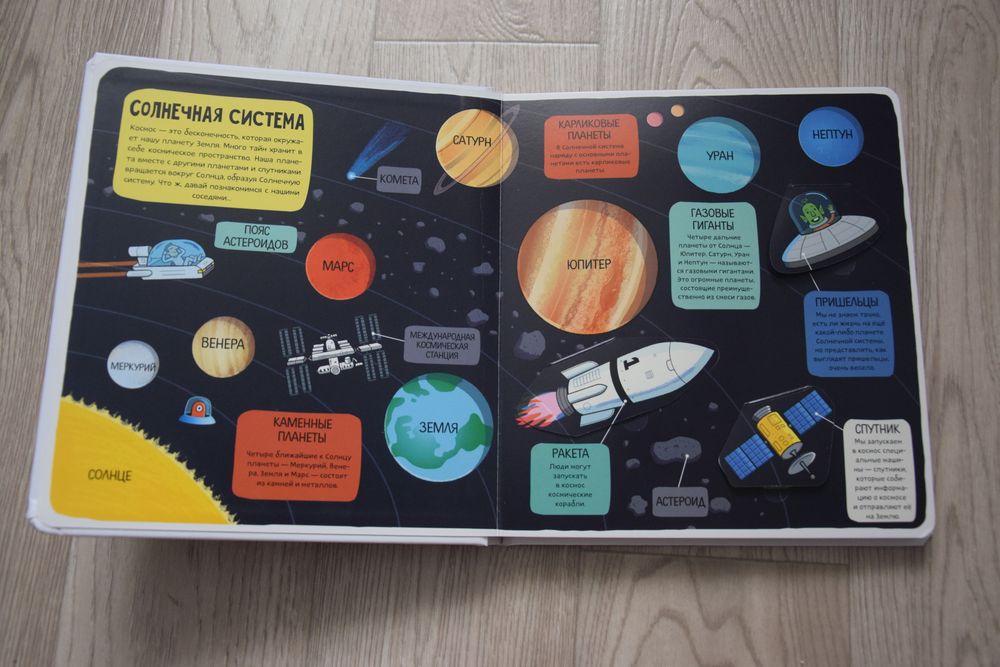 СОЛНЕЧНАЯ СИСТЕМА
Космос — это бесконечность, которая окружа-
ет нашу планету Земля. Много тайн хранит в
себе космическое пространство. Наша плане-
та вместе с другими планетами и спутниками
вращается вокруг Солнца, образуя Солнечную
систему. Что ж, давай познакомимся с нашими
соседями...
КОМЕТА
САТУРН
ПОЯС
АСТЕРОИДОВ
МАРС
МЕРКУРИЙ
ВЕНЕРА
МЕЖДУНАРОДНАЯ
КОСМИЧЕСКАЯ
СТАНЦИЯ
ЗЕМЛЯ
КАМЕННЫЕ
ПЛАНЕТЫ
Четыре ближайшие к Солнцу
планеты — Меркурий, Вене-
ра, Земля и Марс — состоят
из камней и металлов.
СОЛНЦЕ
КАРЛИКОВЫЕ
ПЛАНЕТЫ
В Солнечной системе
наряду с основными пла-
нетами есть карликовые
планеты.
УРАН
НЕПТУН
ЮПИТЕР
ГАЗОВЫЕ
ГИГАНТЫ
Четыре дальние
планеты от Солнца —
Юпитер, Сатурн, Уран
и Нептун — называют-
ся газовыми гигантами.
Это огромные планеты,
состоящие преимуще-
ственно из смеси газов.
ПРИШЕЛЬЦЫ
Мы не знаем точно,
есть ли жизнь на ещё
какой-либо планете
Солнечной системы,
но представлять, как
выглядят пришельцы,
очень весело.
1
РАКЕТА
Люди могут
запускать
в космос
космические
корабли.
АСТЕРОИД
СПУТНИК
Мы запускаем
в космос специ-
альные маши-
ны — спутники,
которые соби-
рают информа-
цию о космосе
и отправляют её
на Землю.